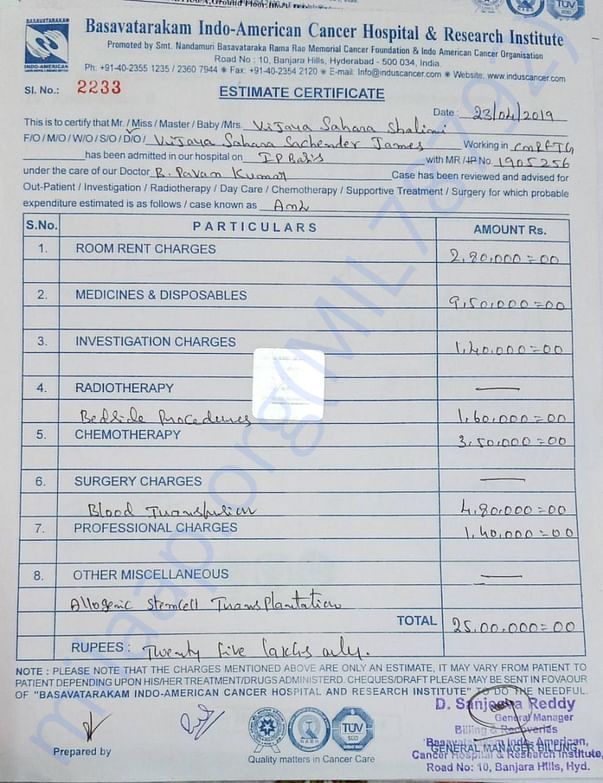 BASAVATARAKAM
INDO-AMERICAN
Basavatarakam Indo-American Cancer Hospital & Research Institute
Promoted by Smt. Nandamuri Basavataraka Rama Rao Memorial Cancer Foundation & Indo American Cancer Organisation
Road No : 10, Banjara Hills, Hyderabad - 500 034, India.
Ph: +91-40-2355 1235 / 2360 7944 * Fax: +91-40-2354 2120 * E-mail: Info@induscancer.com * Website: www.induscancer.com
Sl. No.: 2233
ESTIMATE CERTIFICATE
Date : 23/04/2019
This is to certify that Mr. / Miss / Master / Baby /Mrs. Vijaya Sahara Shalini
F/O / M/O / W/O / S/O / D/O / Vijaya Sahara Sachender James Working in
has been admitted in our hospital on IP Basis with MR / IP No. 1905256
under the care of our Doctor B. Pavan Kumar Case has been reviewed and advised for
Out-Patient / Investigation / Radiotherapy / Day Care / Chemotherapy / Supportive Treatment / Surgery for which probable
expenditure estimated is as follows / case known as AML
S.No. PARTICULARS AMOUNT Rs.
1. ROOM RENT CHARGES 2,80,000=00
2. MEDICINES & DISPOSABLES 9,50,000=00
3. INVESTIGATION CHARGES 1,40,000=00
4. RADIOTHERAPY —
Bedside Procedures 1,60,000=00
5. CHEMOTHERAPY 3,50,000=00
6. SURGERY CHARGES —
Blood Transfusion 4,80,000=00
7. PROFESSIONAL CHARGES 1,40,000=00
8. OTHER MISCELLANEOUS —
Allogenic Stemcell Transplantation
TOTAL 25,00,000=00
RUPEES : Twenty five lakhs only.
NOTE : PLEASE NOTE THAT THE CHARGES MENTIONED ABOVE ARE ONLY AN ESTIMATE, IT MAY VARY FROM PATIENT TO
PATIENT DEPENDING UPON HIS/HER TREATMENT/DRUGS ADMINISTERD. CHEQUES/DRAFT PLEASE MAY BE SENT IN FOVAOUR
OF "BASAVATARAKAM INDO-AMERICAN CANCER HOSPITAL AND RESEARCH INSTITUTE" TO DO THE NEEDFUL.
D. Sanjeeva Reddy
General Manager
Billing & Recoveries
Basavatarakam Indo-American,
Cancer Hospital & Research Institute
Road No: 10, Banjara Hills, Hyd.
GENERAL MANAGER BILLING
Prepared by
TUV
Quality matters in Cancer Care